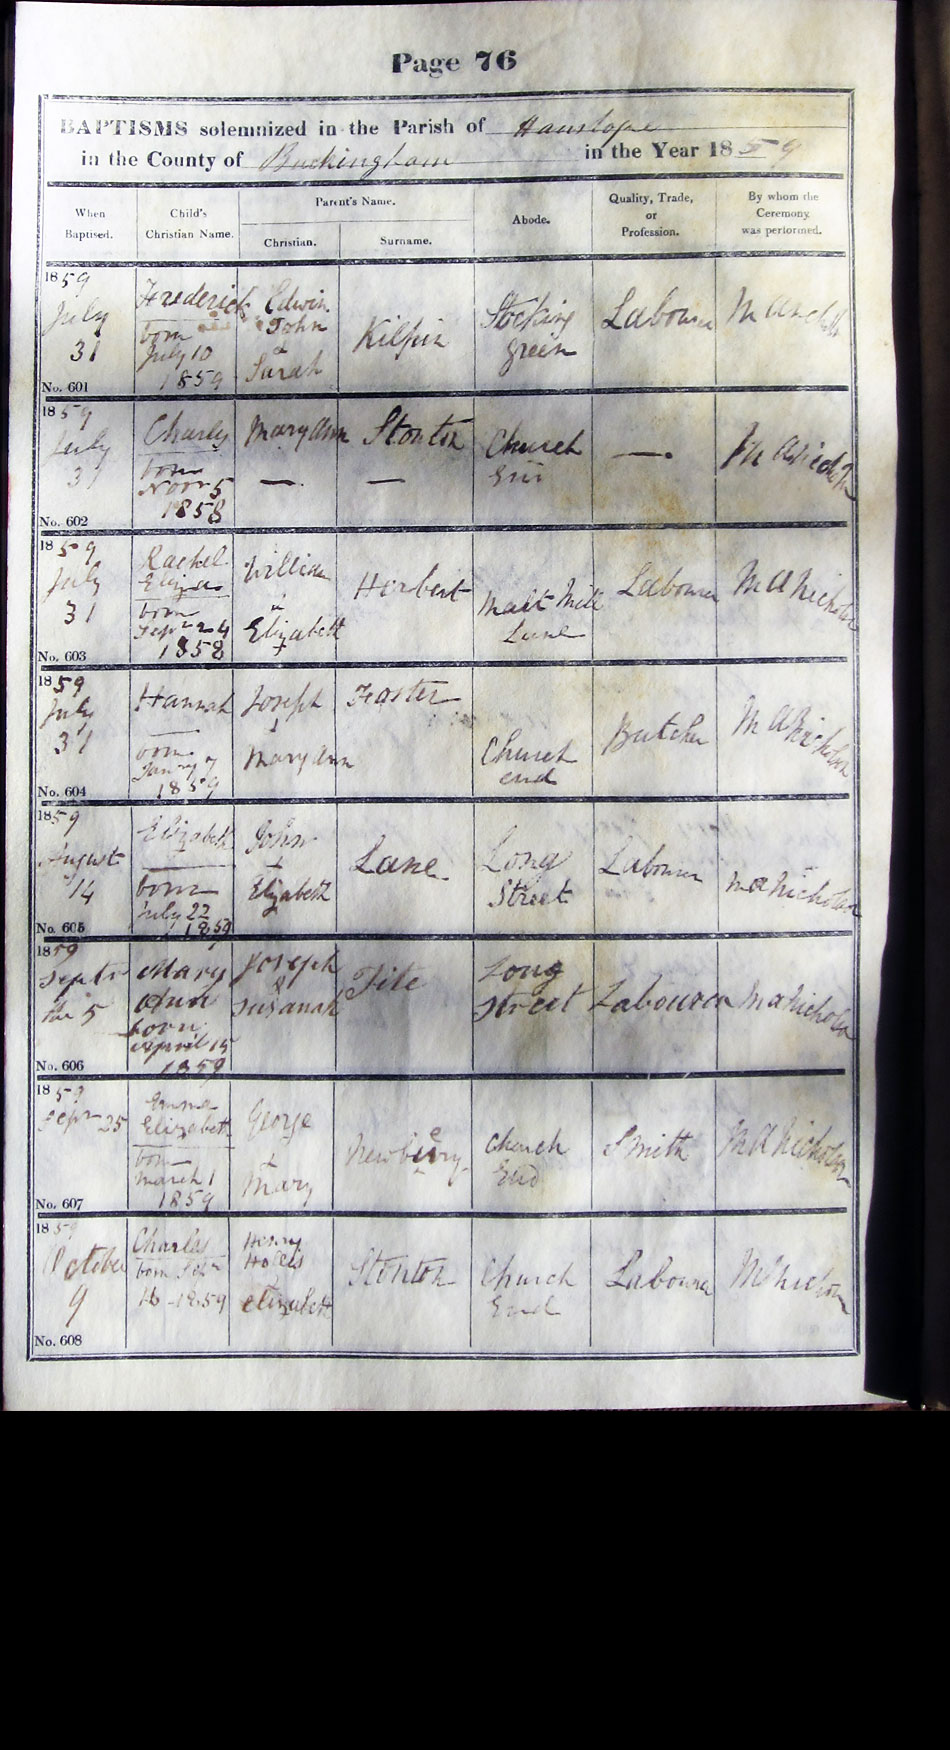 Page 76
BAPTISMS solemnized in the Parish of Hanslope
in the County of Buckingham in the Year 1859
When Baptised.
Child's Christian Name.
Parent's Name.
Christian.
Surname.
Abode.
Quality, Trade, or Profession.
By whom the Ceremony was performed.
1859
July
31
No. 601
Frederick
born
July 10
1859
Edwin
John
&
Sarah
Kilpin
Stocking
green
Labourer
1859
July
31
No. 602
Charles
born
Novr 5
1858
Mary Ann
—
Stonton
—
Church
End
—
M A Nicholson
1859
July
31
No. 603
Rachel
Eliza
born
Sepr 24
1858
William
&
Elizabeth
Herbert
Malt Mill
Lane
Labourer
M A Nicholson
1859
July
31
No. 604
Hannah
born
Janry 7
1859
Joseph
&
Mary Ann
Foster
Church
end
Butcher
M A Nicholson
1859
August
14
No. 605
Elizabeth
born
July 22
1859
John
&
Elizabeth
Lane
Long
Street
Labourer
M A Nicholson
1859
Septr
the 5
No. 606
Mary
Ann
born
April 15
1859
Joseph
&
Susanah
Tite
Long
Street
Labourer
M A Nicholson
1859
Sepr 25
No. 607
Emma
Elizabeth
born
March 1
1859
George
&
Mary
Newbery
Church
End
Smith
M A Nicholson
1859
October
9
No. 608
Charles
born Sepr
16 - 1859
Henry
Elizabeth
Stonton
Church
End
Labourer